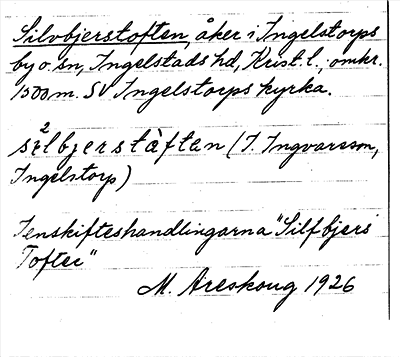 Silvbjerstoften, åker i Ingelstorps
by o. sn, Ingelstads hd, Krist. l.; omkr.
1500 m. SV Ingelstorps kyrka.
sɛ2lbjerstàftɛn (J. Ingvarsson,
Ingelstorp)
I enskifteshandlingarna "Silfbjers
Tofter"
M. Areskoug 1926